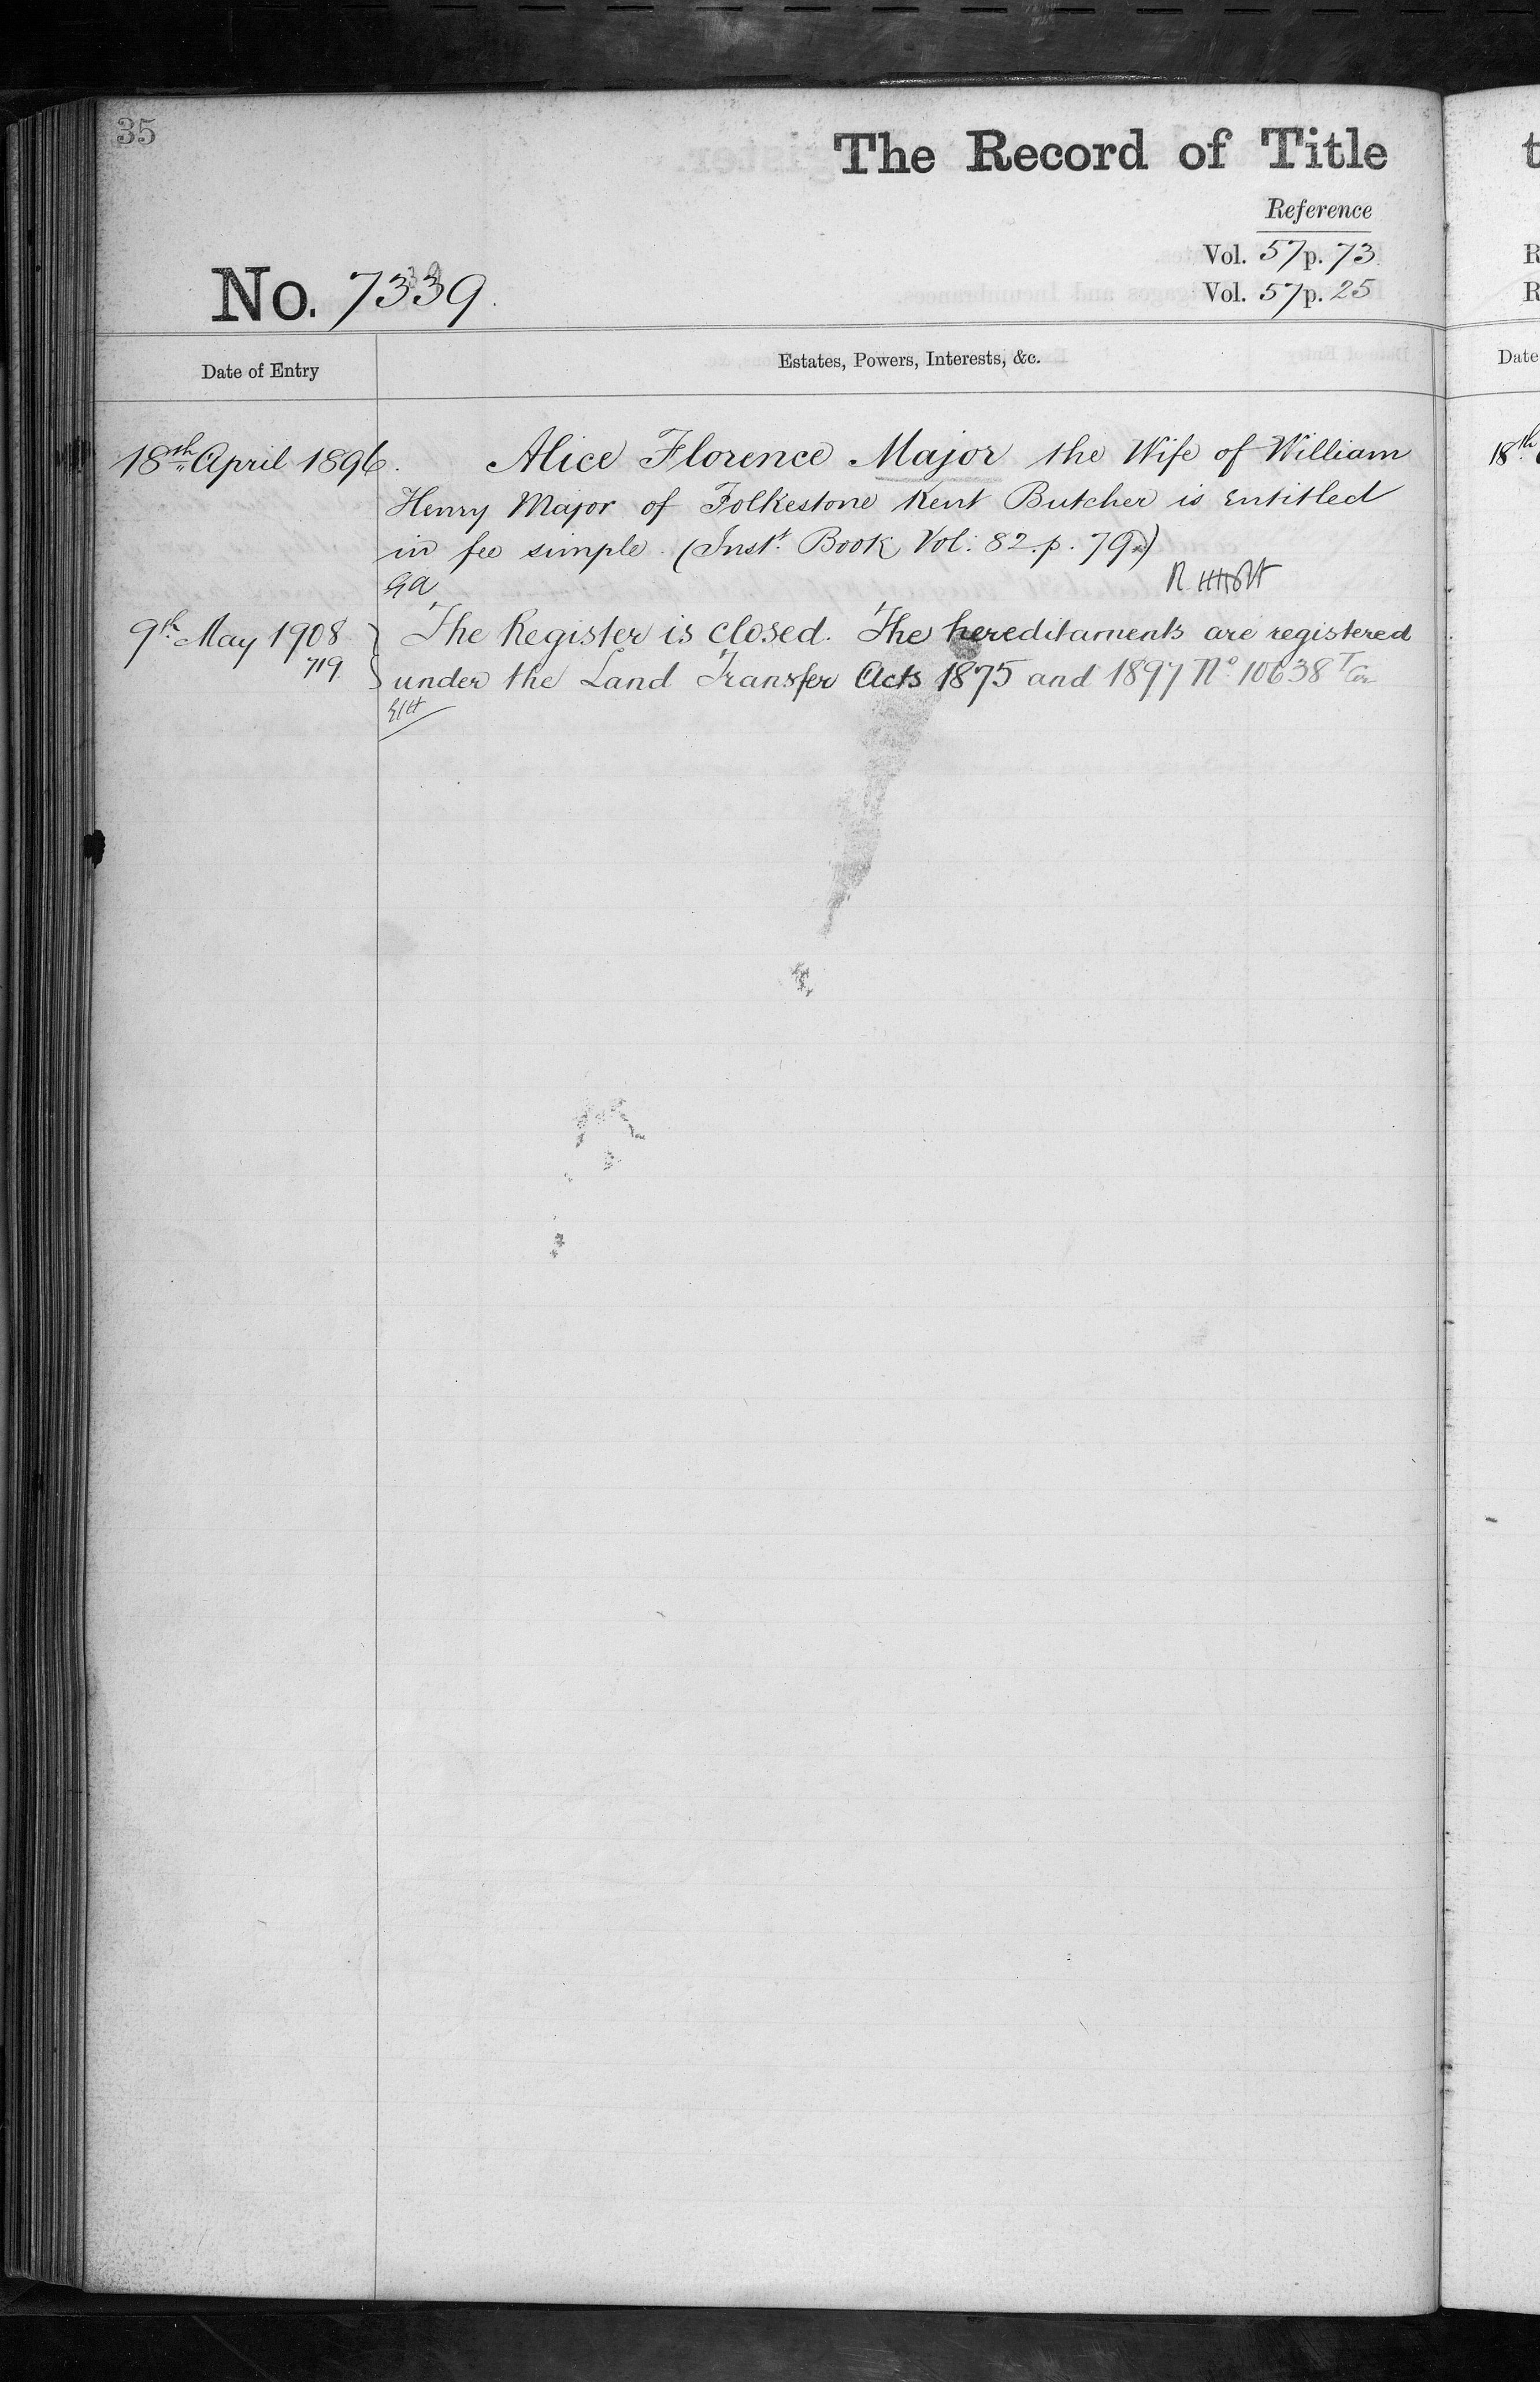 35
The Record of Title
Reference
Vol. 57 p. 73
No. 7339.
Vol. 57 p. 25
Date of Entry
Estates, Powers, Interests, &c.
18th April 1896. Alice Florence Major the Wife of William
Henry Major of Folkestone Kent Butcher is entitled
in fee simple. (Inst. Book Vol: 82. p. 79)
9th May 1908 The Register is closed. The hereditaments are registered
719 under the Land Transfer Acts 1875 and 1897 No 10638
t
R
R
Date
18th